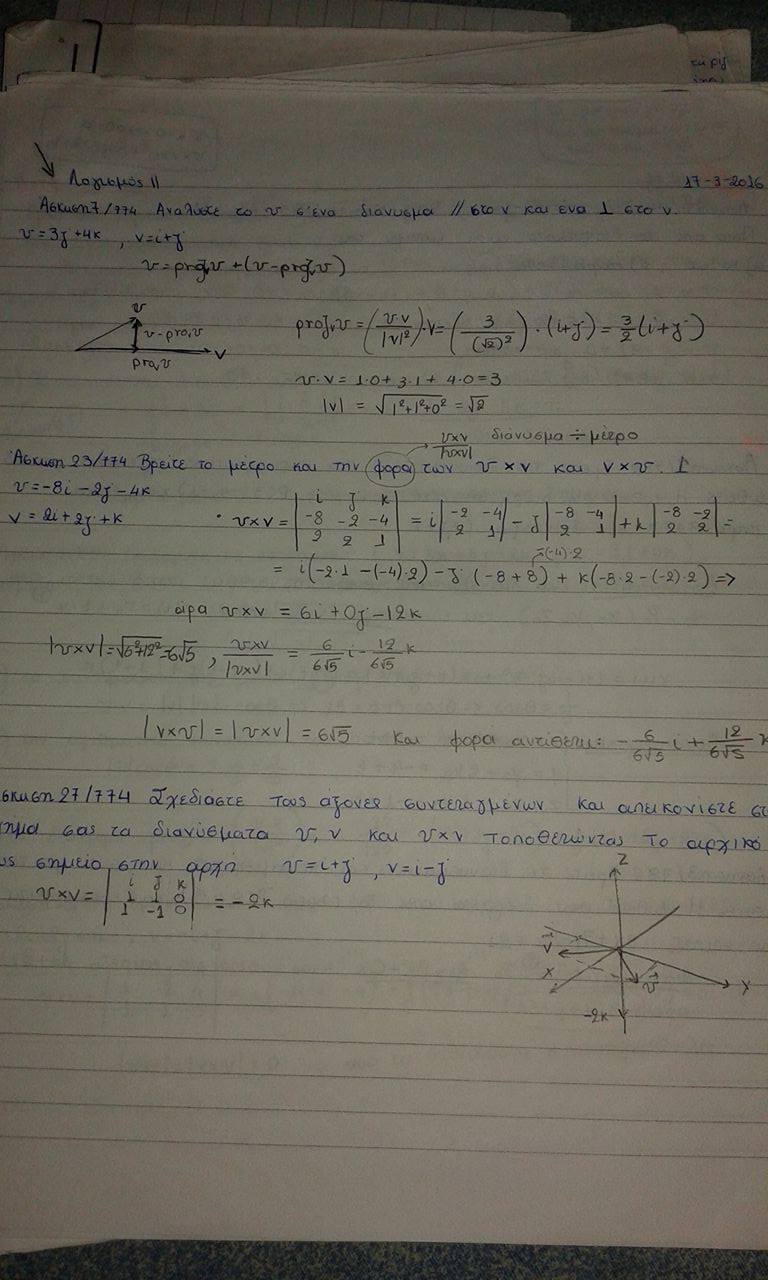 Λογισμός II
17-3-2016
Άσκηση 7/774 Αναλύστε το υ σ'ένα διάνυσμα // στο v και ένα ⊥ στο v.
υ=3j+4k , v=i+j
υ=proj_v υ+(υ-proj_v υ)
υ
υ-pro_v υ
v
pro_v υ
proj_v υ=(υ·v/|v|²)·v=(3/(√2)²)·(i+j)=3/2(i+j)
υ·v=1·0+3·1+4·0=3
|v| = √(1²+1²+0²) = √2
υxv/|υxv| διάνυσμα ÷ μέτρο
Άσκηση 23/774 Βρείτε το μέτρο και την φορά των υxv και vxυ.
υ=-8i-2j-4k
v=2i+2j+k
υxv= | i j k | = i | -2 -4 | - j | -8 -4 | + k | -8 -2 | =
| -8 -2 -4 | | 2 1 | | 2 1 | | 2 2 |
| 2 2 1 |
-(-4)·2
= i(-2·1-(-4)·2) - j(-8+8) + k(-8·2-(-2)·2) =>
άρα υxv = 6i+0j-12k
|υxv|=√(6²+12²)=6√5 , υxv/|υxv| = 6/6√5 i - 12/6√5 k
|vxυ| = |υxv| = 6√5 και φορά αντίθετη: -6/6√5 i + 12/6√5 k
σκηση 27/774 Σχεδιάστε τους άξονες συντεταγμένων και απεικονίστε στ
ημα σας τα διανύσματα υ, v και υxv τοποθετώντας το αρχικό
υς σημείο στην αρχή υ=i+j , v=i-j
υxv= | i j k | = -2k
| 1 1 0 |
| 1 -1 0 |
Z
v
X
υ
Y
-2k